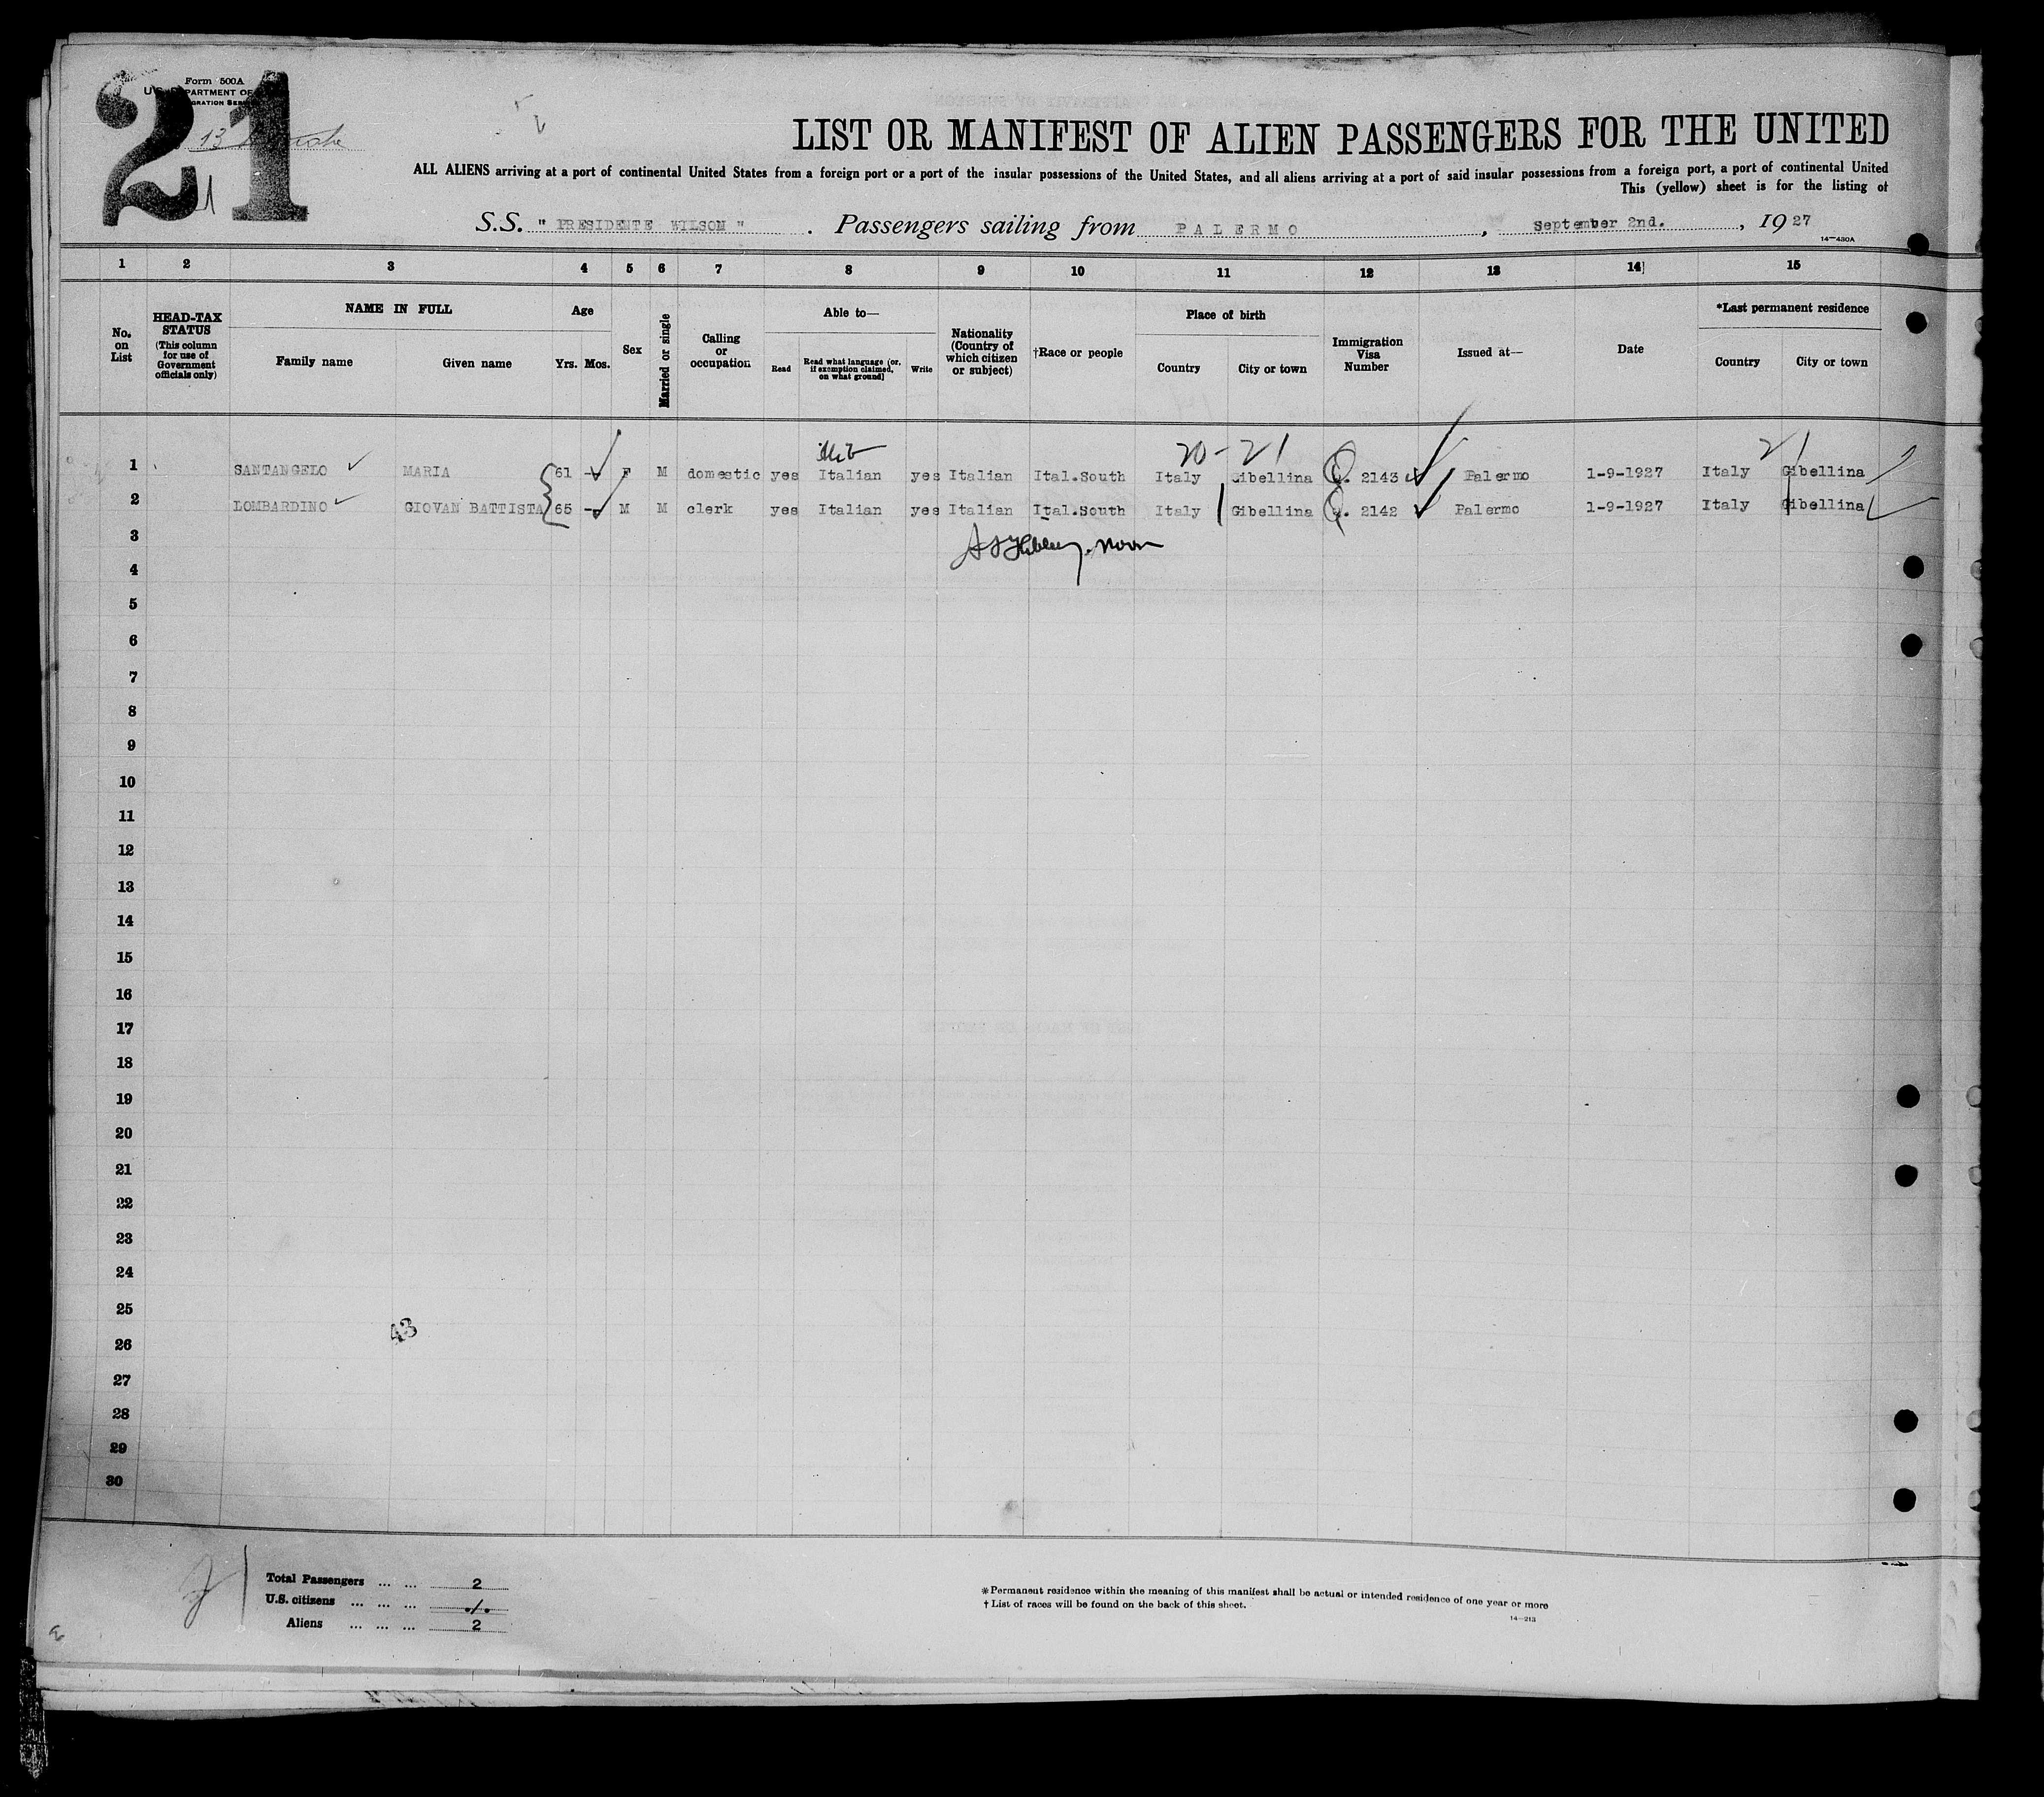 21
Form 500A
U.S. DEPARTMENT OF
IMMIGRATION SERVICE
13
LIST OR MANIFEST OF ALIEN PASSENGERS FOR THE UNITED
ALL ALIENS arriving at a port of continental United States from a foreign port or a port of the insular possessions of the United States, and all aliens arriving at a port of said insular possessions from a foreign port, a port of continental United
This (yellow) sheet is for the listing of
S.S. " PRESIDENTE WILSON ". Passengers sailing from PALERMO, September 2nd., 1927
14—430A
1 2 3 4 5 6 7 8 9 10 11 12 13 14 15
No. on List
HEAD-TAX STATUS (This column for use of Government officials only)
NAME IN FULL
Family name Given name
Age
Yrs. Mos.
Sex
Married or single
Calling or occupation
Able to—
Read Read what language [or, if exemption claimed, on what ground] Write
Nationality (Country of which citizen or subject)
†Race or people
Place of birth
Country City or town
Immigration Visa Number
Issued at—
Date
*Last permanent residence
Country City or town
20-21 21
1 SANTANGELO MARIA 61 F M domestic yes Italian yes Italian Ital.South Italy Gibellina 2143 Palermo 1-9-1927 Italy Gibellina
2 LOMBARDINO GIOVAN BATTISTA 65 M M clerk yes Italian yes Italian Ital.South Italy Gibellina 2142 Palermo 1-9-1927 Italy Gibellina
3
4
5
6
7
8
9
10
11
12
13
14
15
16
17
18
19
20
21
22
23
24
25
43
26
27
28
29
30
Total Passengers ... ... 2
U.S. citizens ... ... ... ./.
Aliens ... ... ... 2
*Permanent residence within the meaning of this manifest shall be actual or intended residence of one year or more
† List of races will be found on the back of this sheet.
14—213